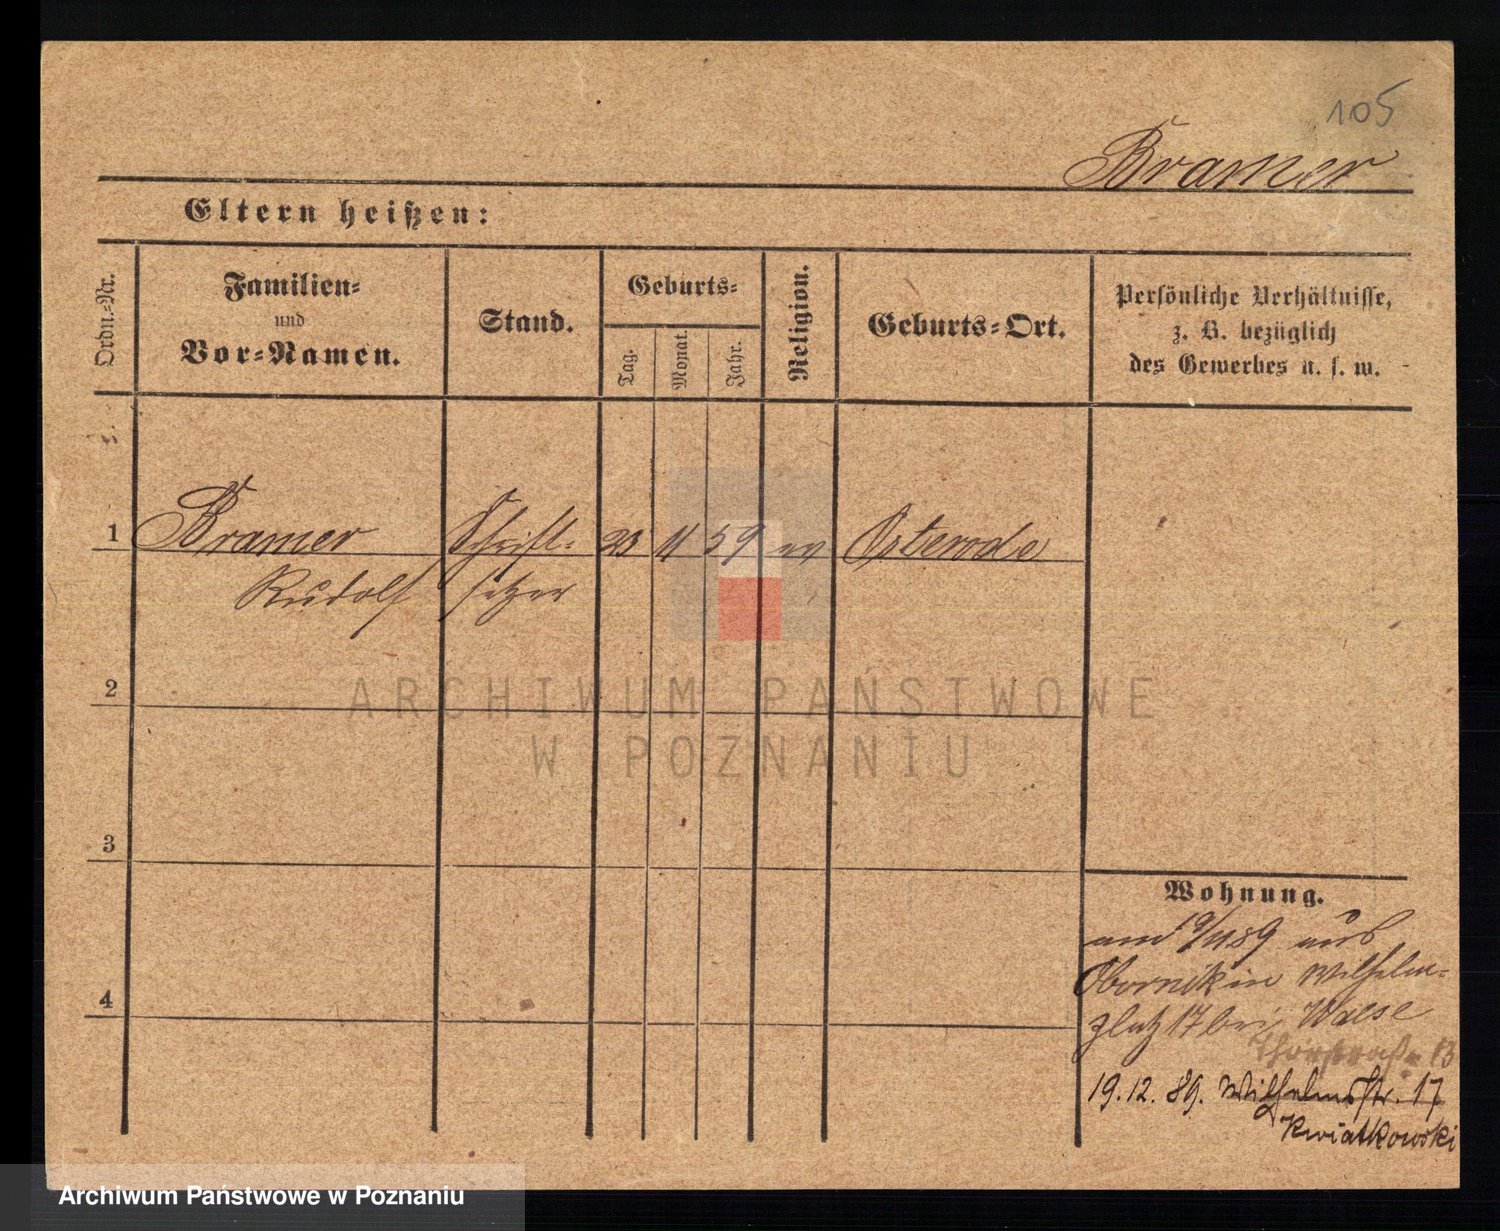 105
Bramer
Eltern heißen:
Ordn.-Nr.
Familien-
und
Vor-Namen.
Stand.
Geburts-
Tag.
Monat.
Jahr.
Religion.
Geburts-Ort.
Persönliche Verhältnisse,
z. B. bezüglich
des Gewerbes u. s. w.
1
Bramer Schrift- 23 11 59 ev Osterode
Rudolf setzer
2
ARCHIWUM PAŃSTWOWE
W POZNANIU
3
4
Wohnung.
am 19/11 89 aus
Obornik in Wilhelm-
platz 17 bei
19.12.89. Wilhelmsstr. 17
Kwiatkowski
Archiwum Państwowe w Poznaniu